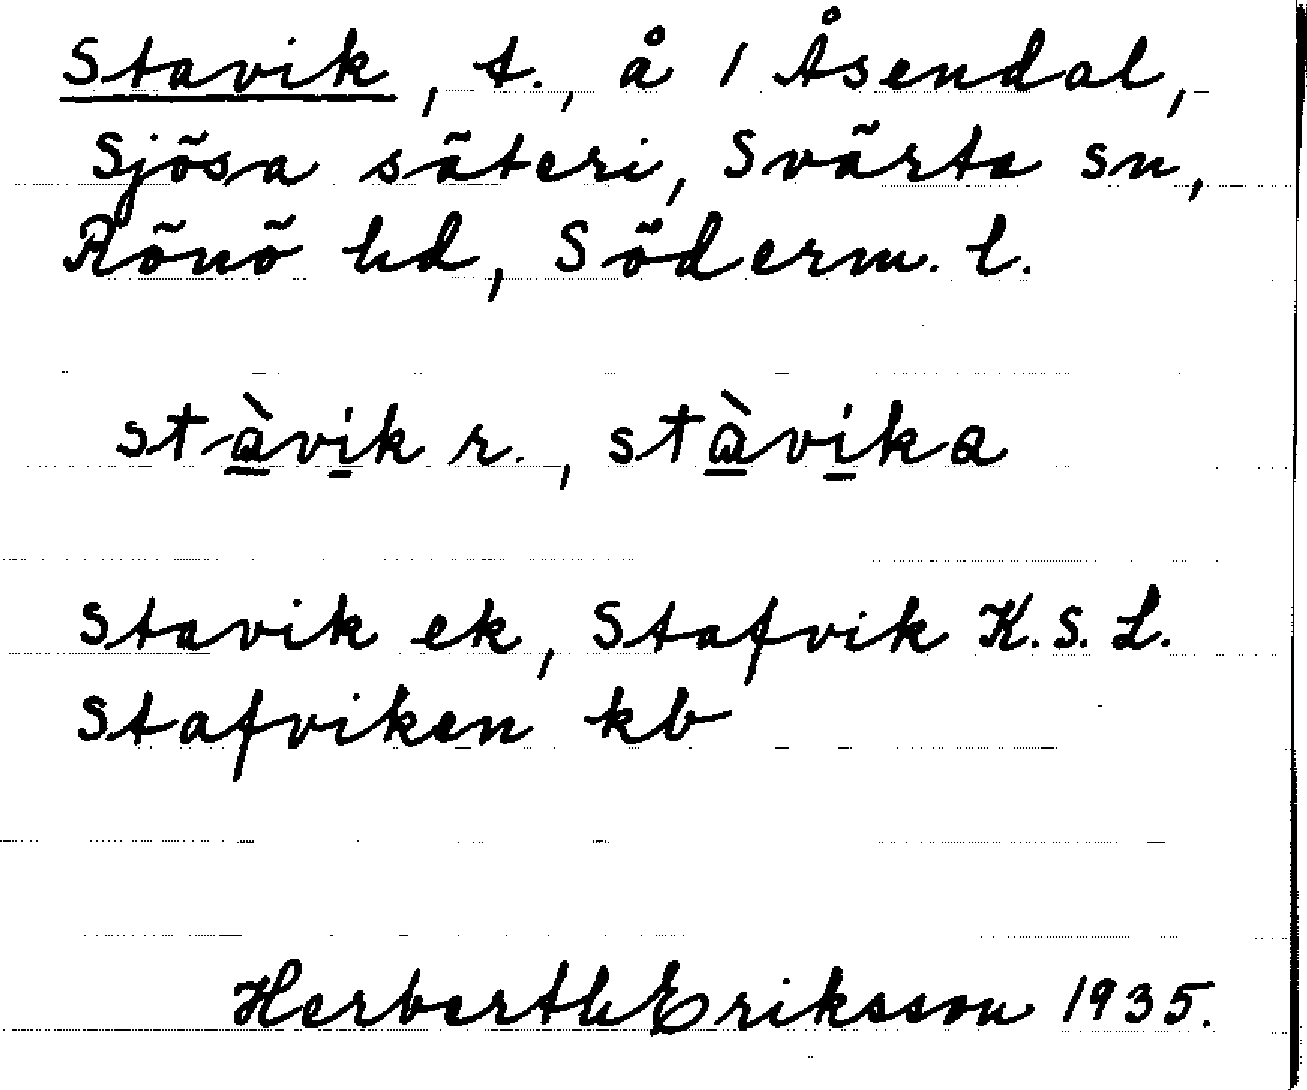 Stavik, t., å 1 Åsendal,
Sjösa säteri, Svärta sn,
Rönö hd, Söderm. l.
stàvik r., stàvika
Stavik ek, Stafvik K.S.L.
Stafviken kb
Herberth Eriksson 1935.